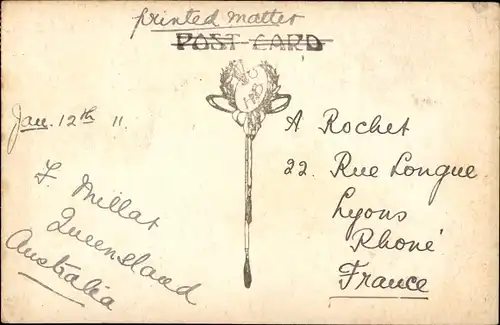 printed matter
POST CARD
Jan. 12th 11.
F. Millat
Queensland
Australia
A Rochet
22. Rue Longue
Lyons
Rhoné
France